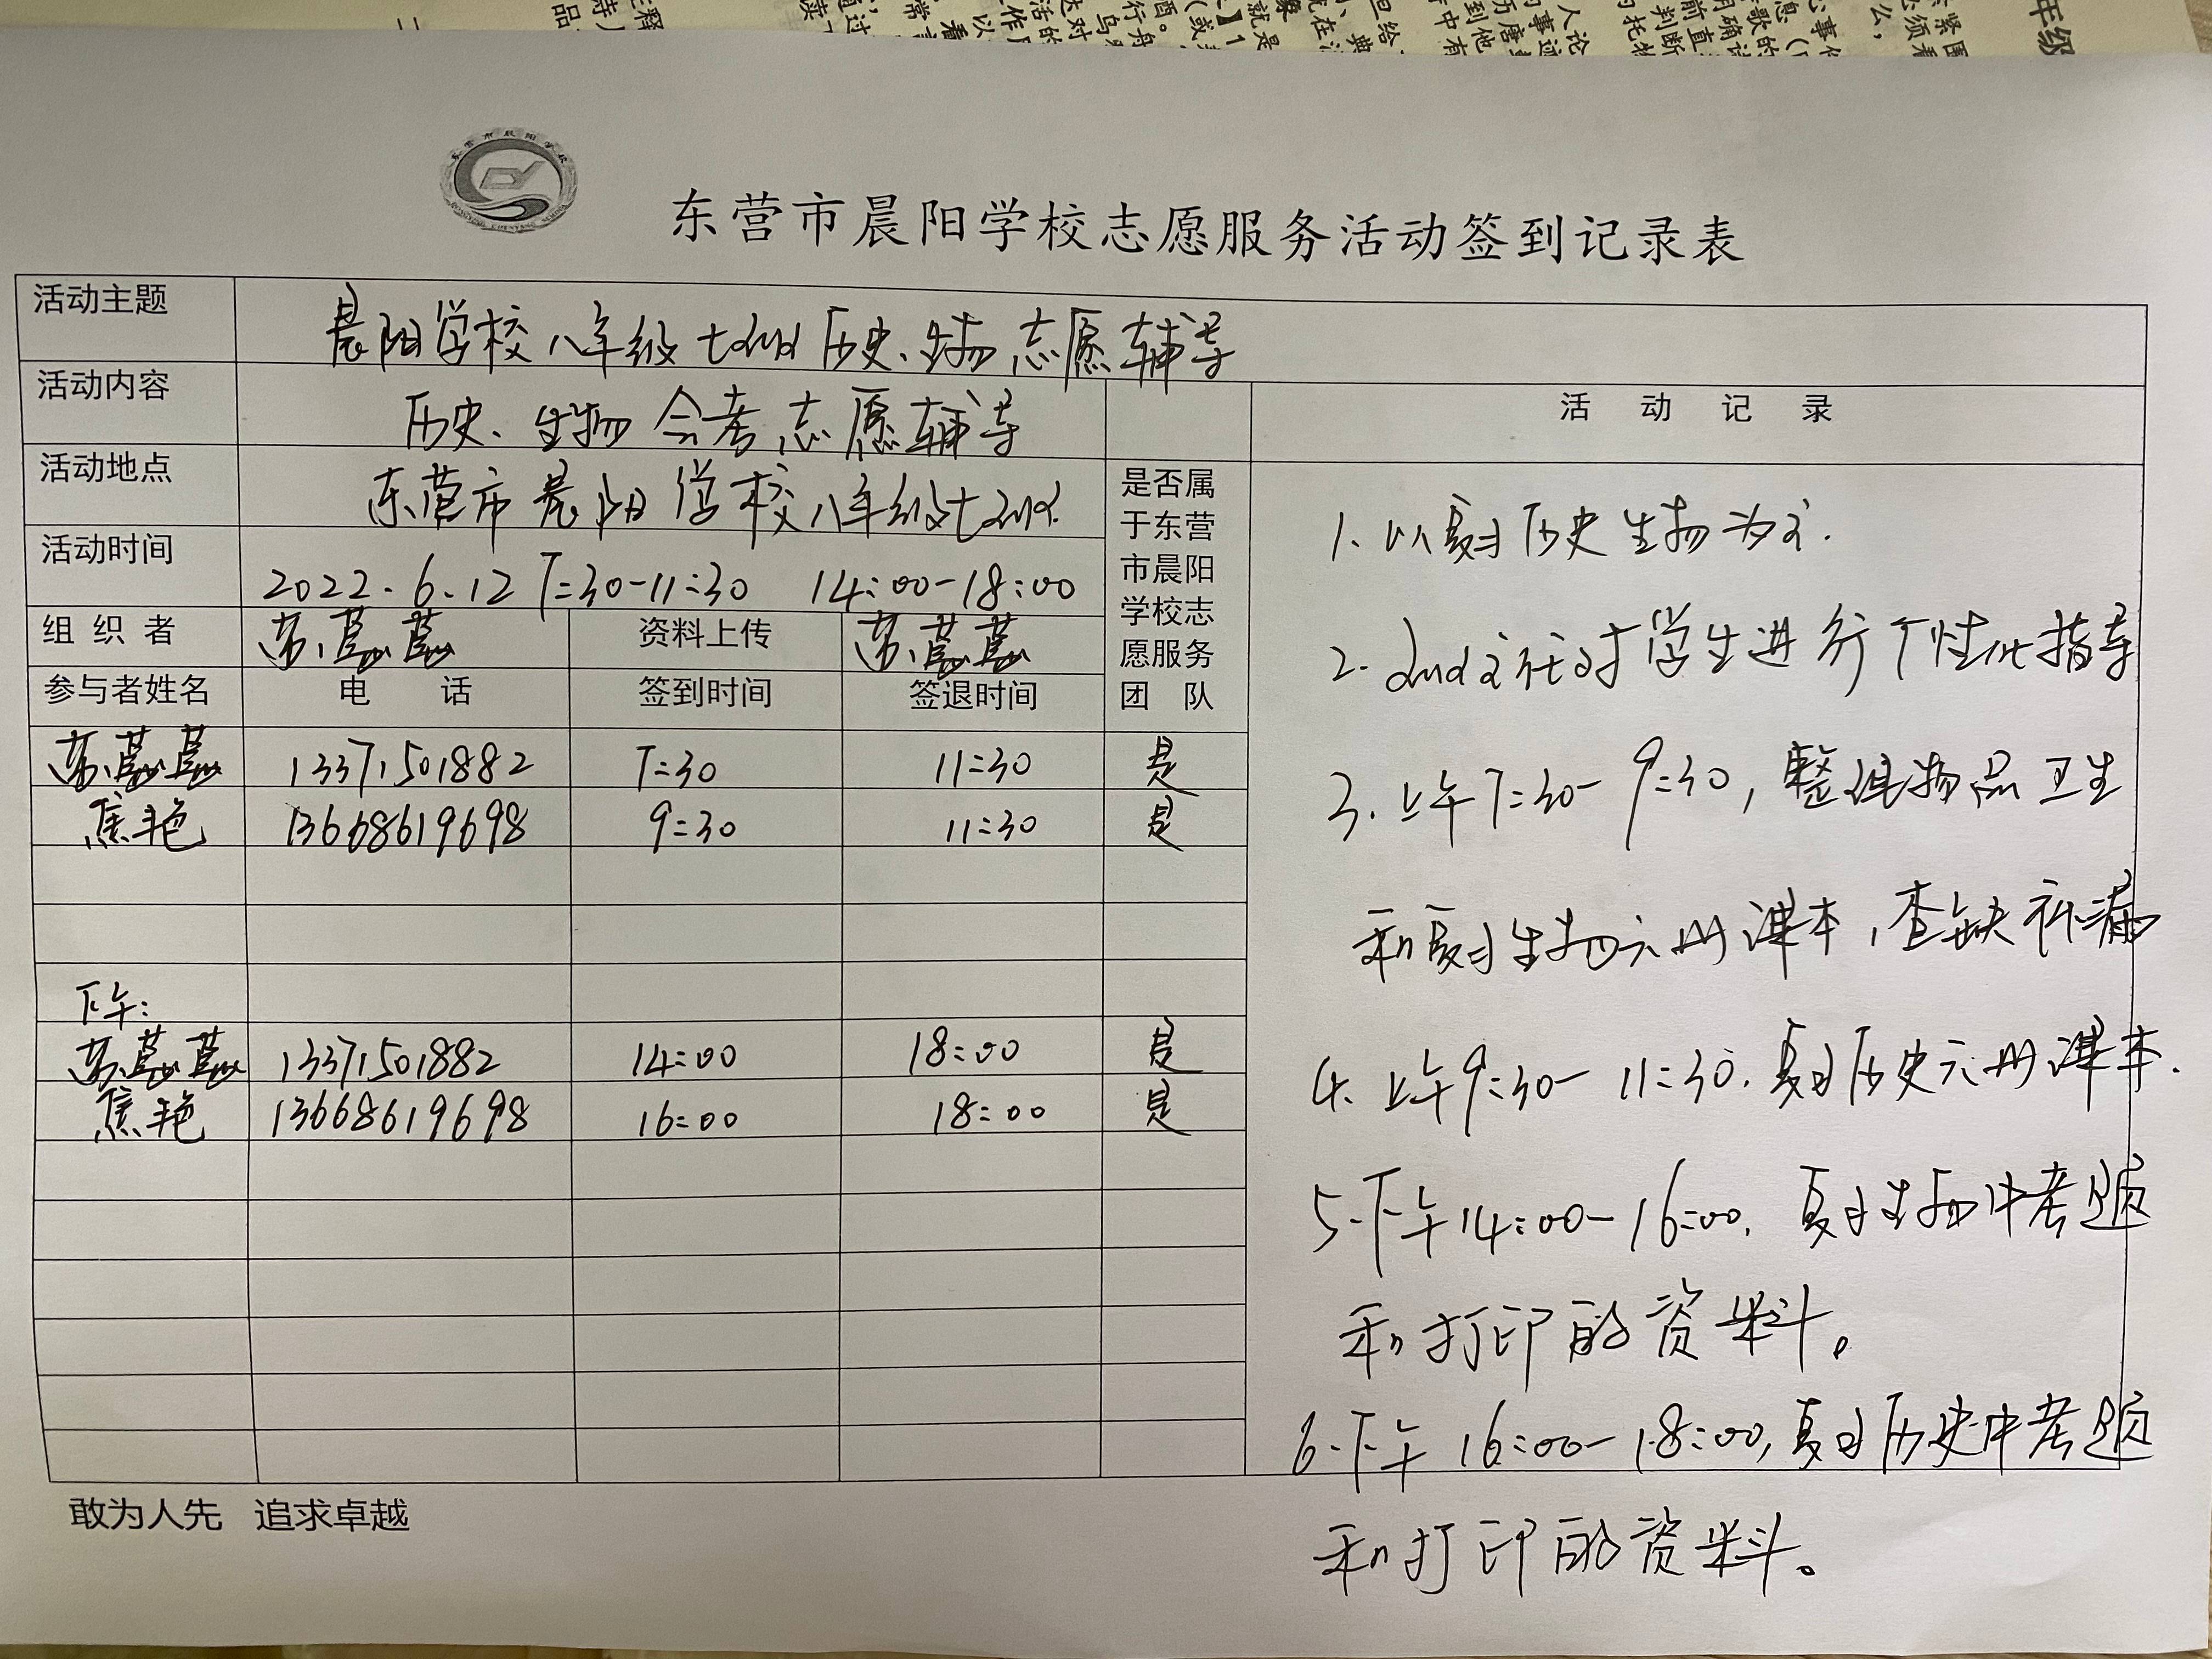 东营市晨阳学校志愿服务活动签到记录表
活动主题 晨阳学校八年级七班历史、生物志愿辅导
活动内容 历史、生物会考志愿辅导
活动地点 东营市晨阳学校八年级七班
活动时间 2022.6.12 7:30-11:30 14:00-18:00
组织者 资料上传
是否属于东营市晨阳学校志愿服务团队
参与者姓名 电话 签到时间 签退时间
13371501882 7:30 11:30 是
焦艳 13668619698 9:30 11:30 是
下午:
13371501882 14:00 18:00 是
焦艳 13668619698 16:00 18:00 是
活动记录
1、以复习历史生物为主.
2、班主任对学生进行个性化指导
3、上午7:30-9:30,整理物品卫生
和复习生物六册课本,查缺补漏
4、上午9:30-11:30,复习历史六册课本.
5、下午14:00-16:00,复习生物中考题
和打印的资料。
6、下午16:00-18:00,复习历史中考题
和打印的资料。
敢为人先 追求卓越